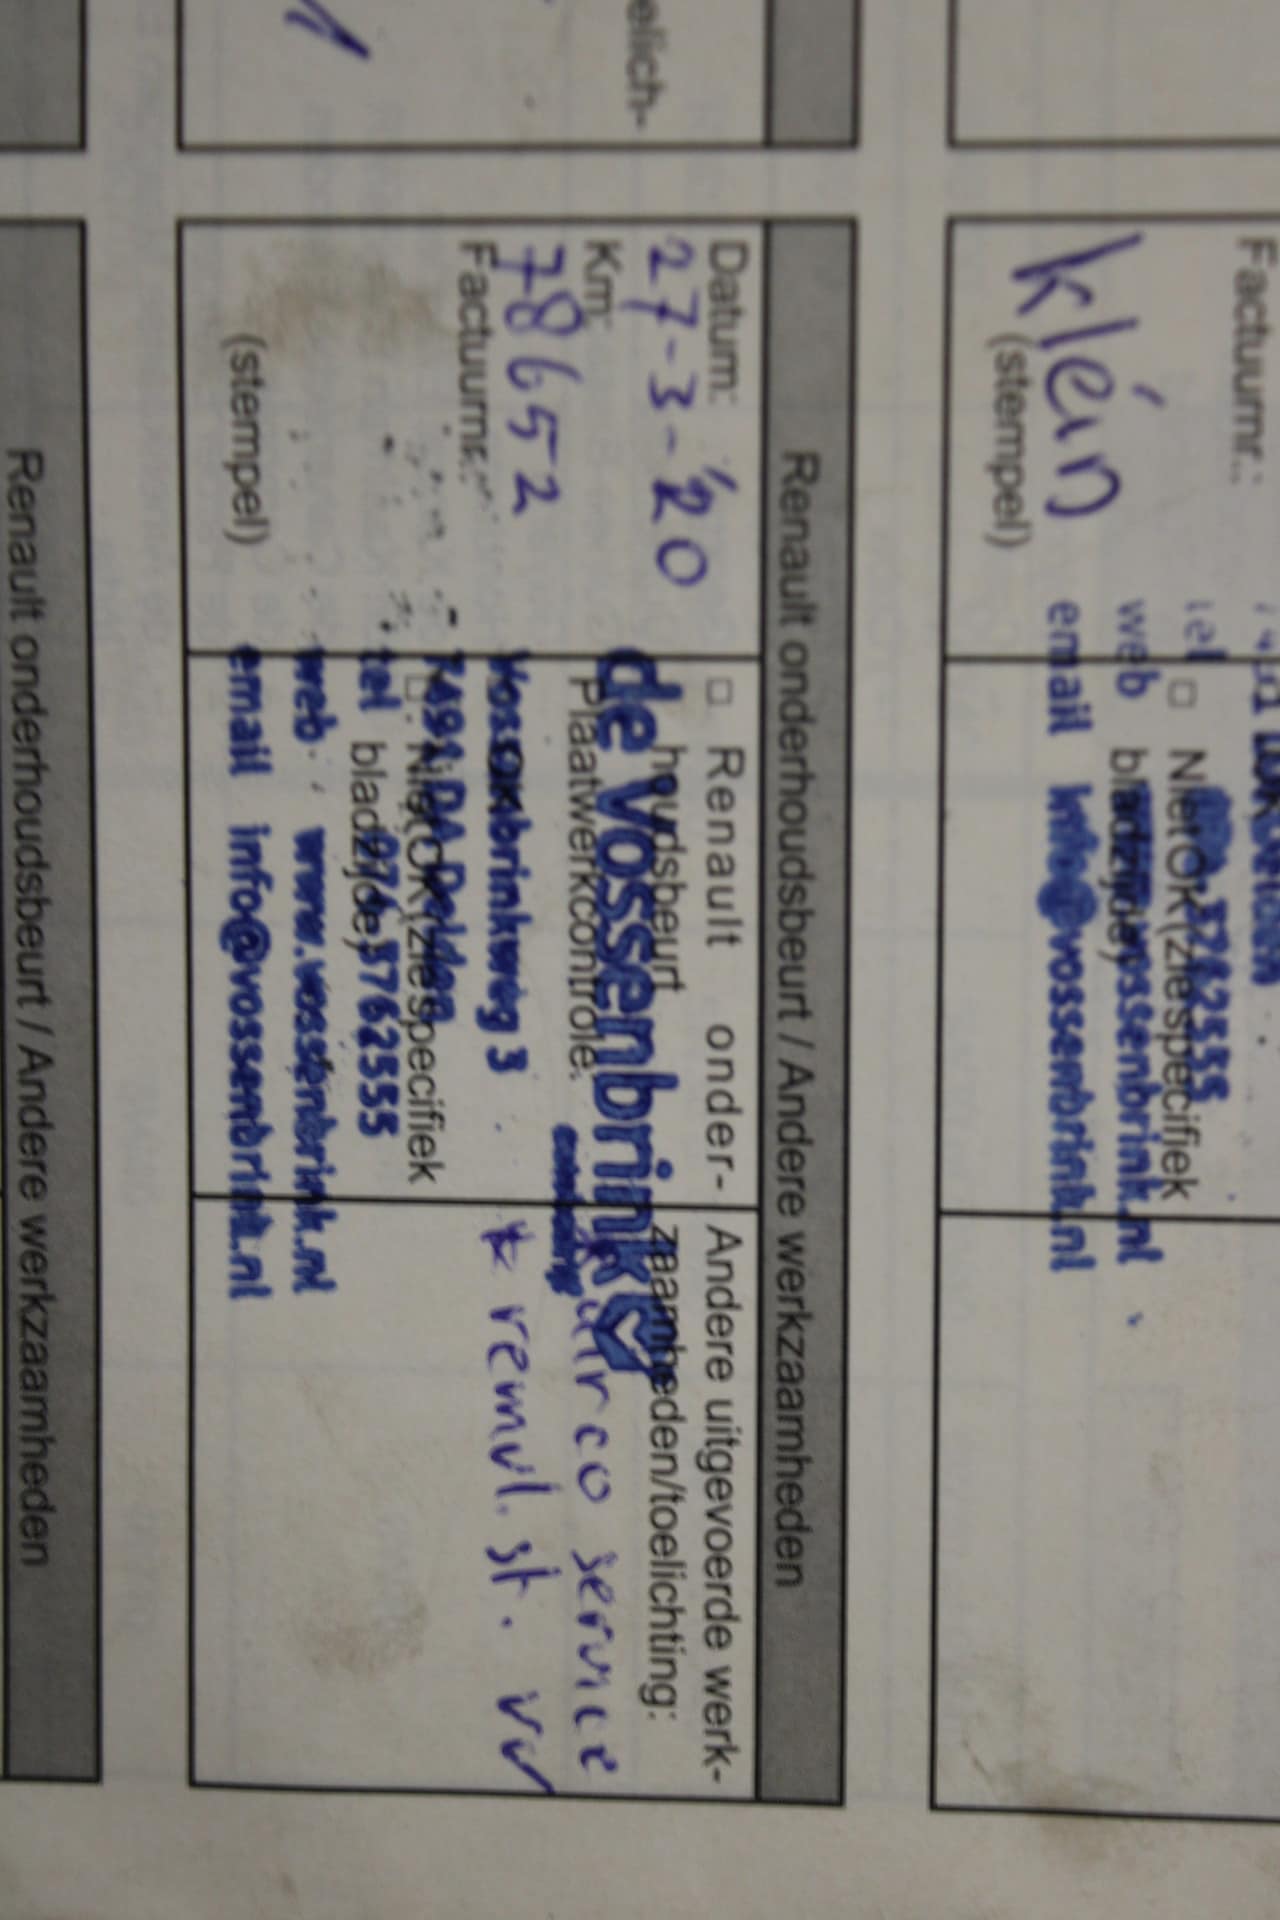 Factuurnr.:
klein
(stempel)
tel
Niet OK (zie specifiek
bladzijde)
5762555
web vossenbrink.nl
email info@vossenbrink.nl
elich-
Renault onderhoudsbeurt / Andere werkzaamheden
Datum:
27-3-'20
Km:
78652
Factuurnr.:
(stempel)
□ Renault onder-
houdsbeurt
Plaatwerkcontrole:
□ Niet OK (zie specifiek
bladzijde)
de Vossenbrink
Vossenbrinkweg 3
7491 DA Delden
tel 074-3762555
web www.vossenbrink.nl
email info@vossenbrink.nl
Andere uitgevoerde werk-
zaamheden/toelichting:
airco service
* remvl. st. vv
Renault onderhoudsbeurt / Andere werkzaamheden